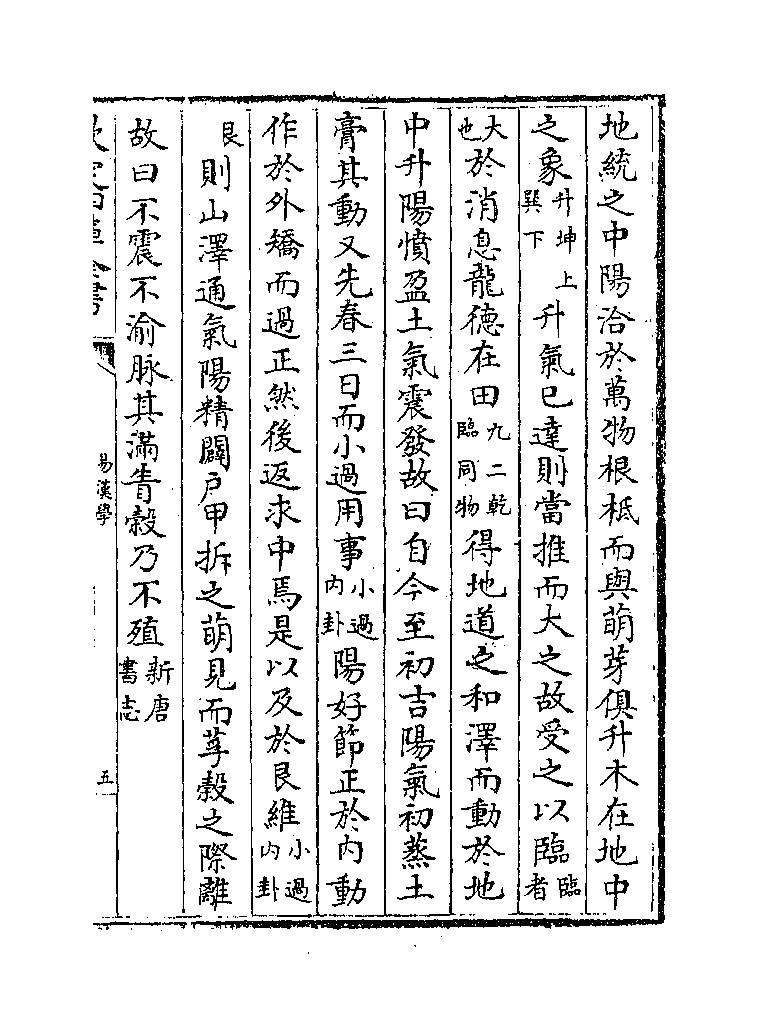 地統之中陽洽於萬物根柢而與萌芽俱升木在地中
之象升坤上巽下升氣已達則當推而大之故受之以臨臨者
大也於消息龍德在田九二乾臨同物得地道之和澤而動於地
中升陽憤盈土氣震發故曰自今至初吉陽氣初蒸土
膏其動又先春三日而小過用事小過内卦陽好節正於内動
作於外矯而過正然後返求中焉是以及於艮維小過内卦
艮則山澤通氣陽精闢户甲拆之萌見而莩穀之際離
故曰不震不渝脉其滿眚穀乃不殖新唐書志
欽定四庫全書
易漢學
五